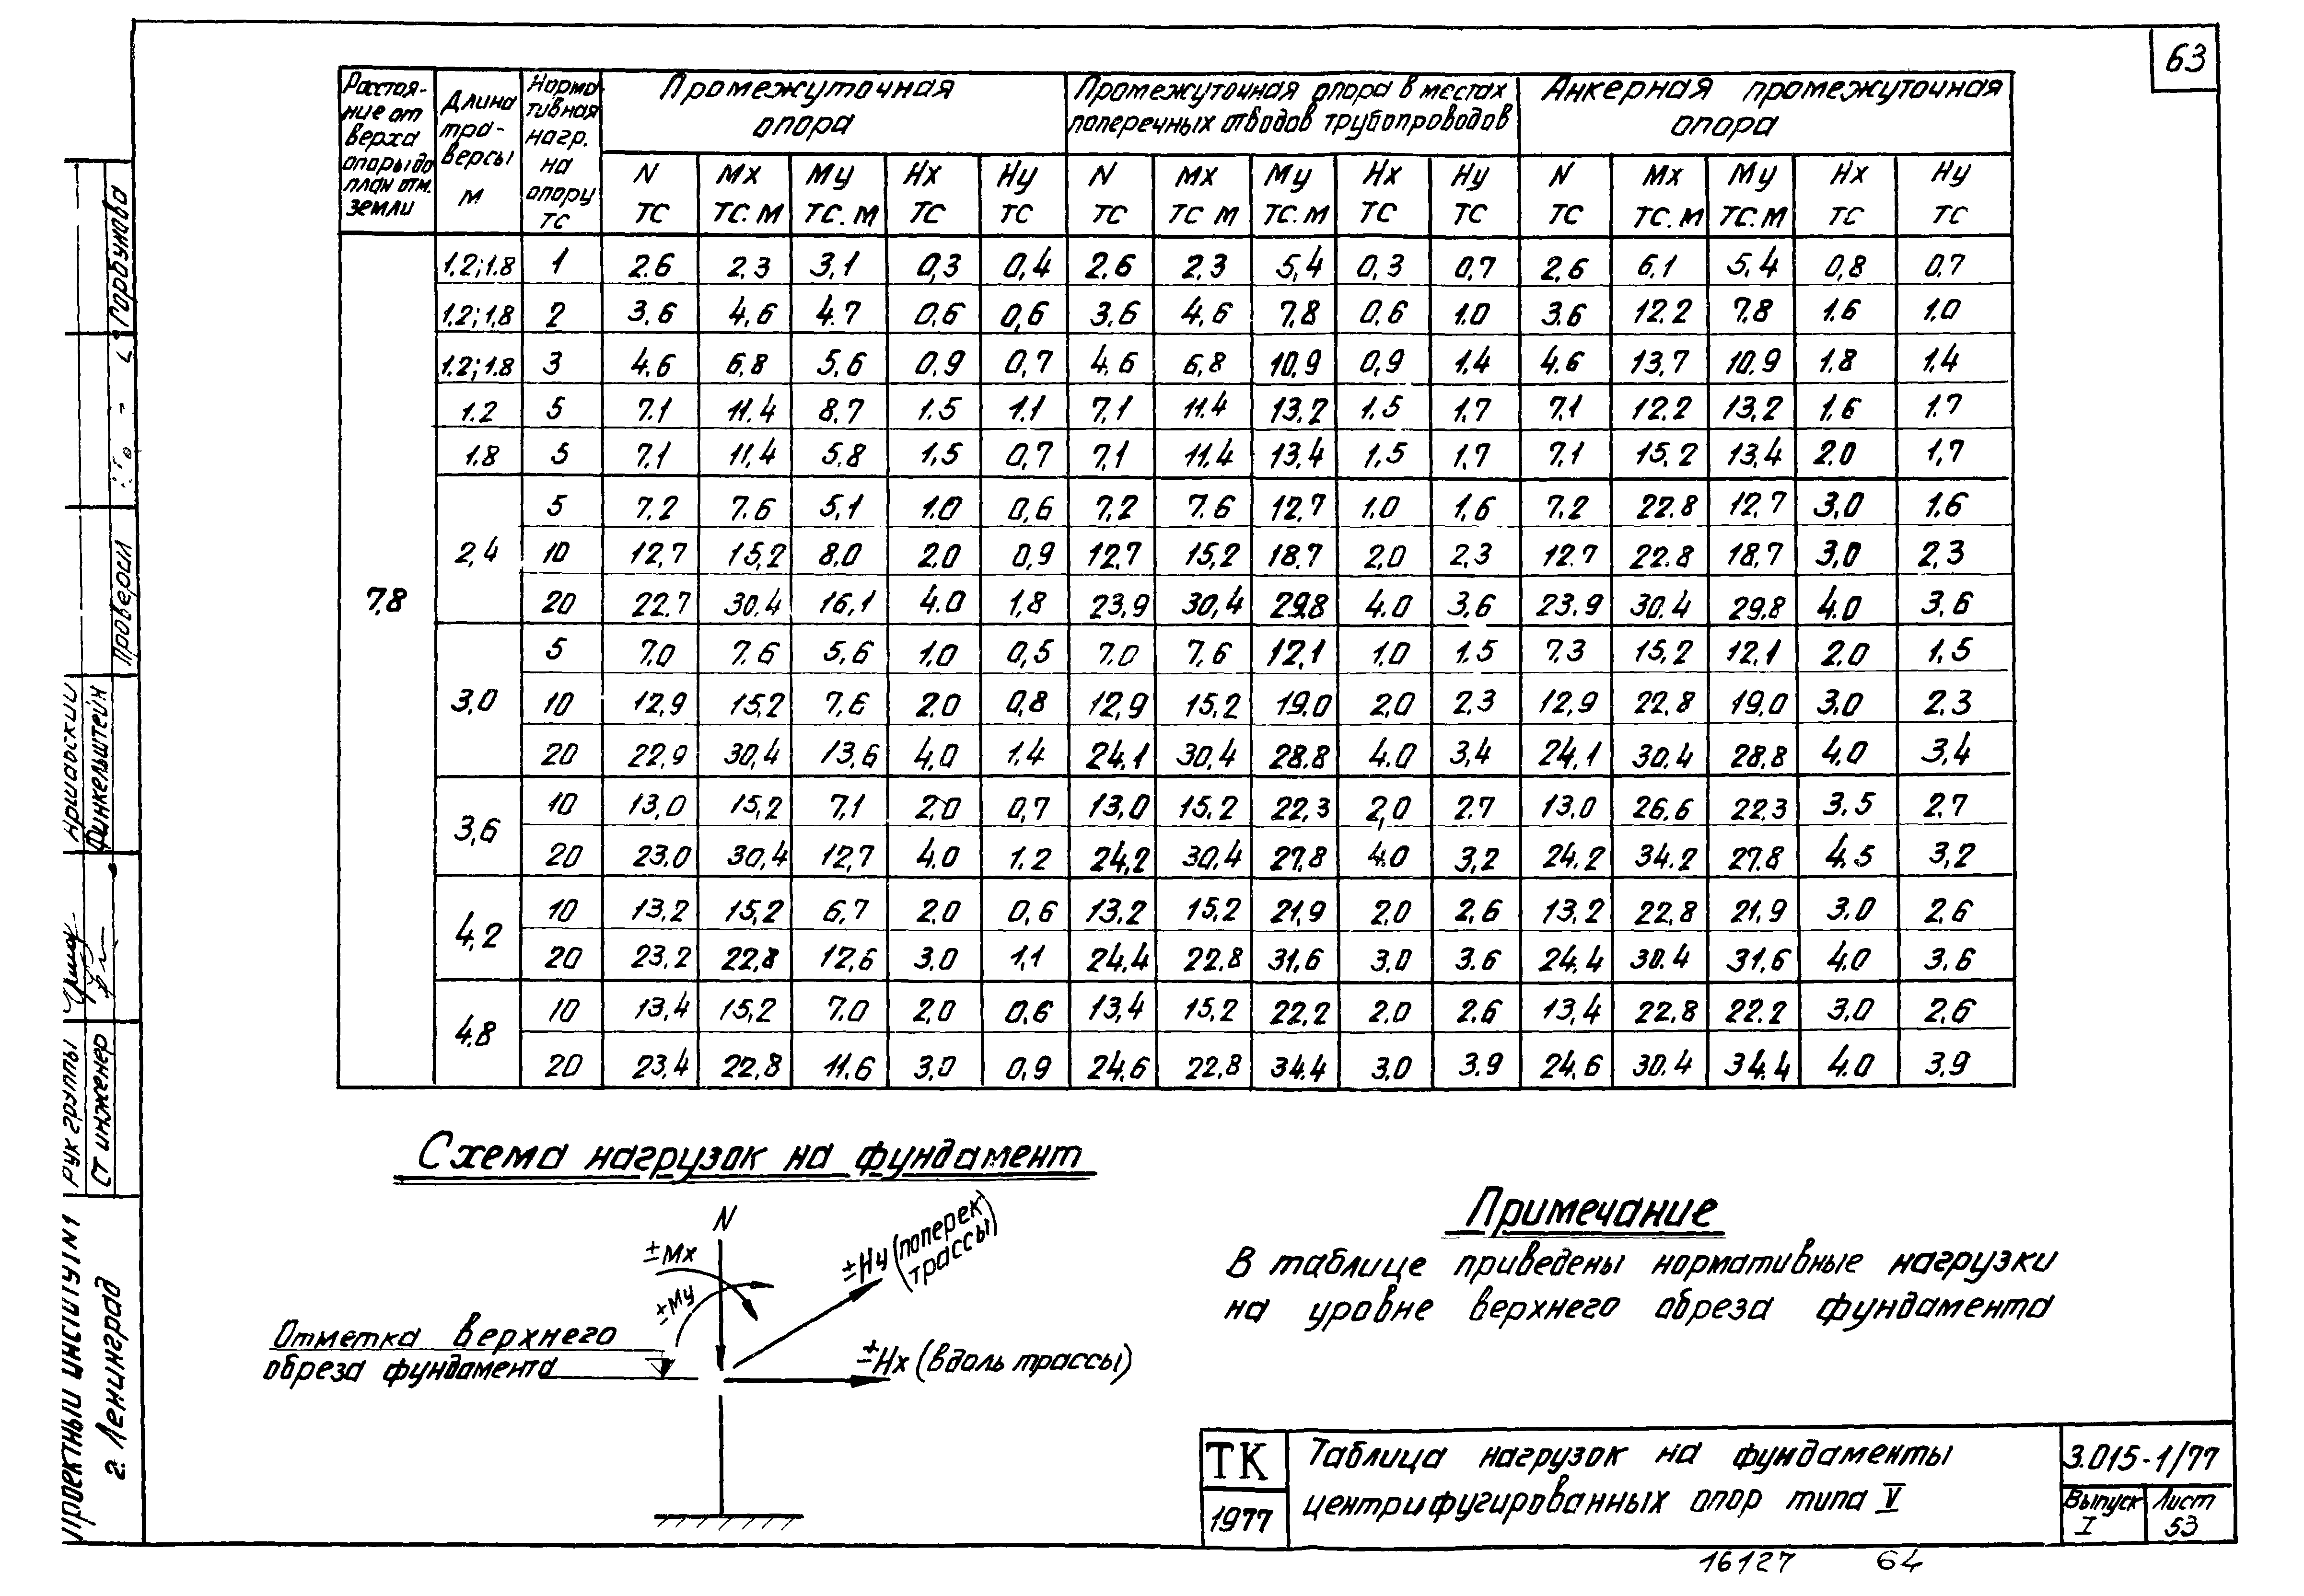 63
Расстоя-
ние от
верха
опоры до
план отм.
земли
Длина
тра-
версы
м
Норма
тивная
нагр.
на
опору
тс
Промежуточная
опора
Промежуточная опора в местах
поперечных отводов трубопроводов
Анкерная промежуточная
опора
N Mx My Hx Hy N Mx My Hx Hy N Mx My Hx Hy
тс тс.м тс.м тс тс тс тс м тс.м тс тс тс тс.м тс.м тс тс
7,8
1.2;1.8 1 2.6 2,3 3,1 0,3 0,4 2.6 2.3 5,4 0,3 0,7 2,6 6.1 5.4 0,8 0.7
1.2;1,8 2 3.6 4,6 4.7 0,6 0,6 3.6 4.6 7,8 0,6 1.0 3.6 12.2 7,8 1.6 1.0
1.2;1.8 3 4.6 6,8 5,6 0,9 0,7 4.6 6,8 10,9 0,9 1.4 4.6 13,7 10.9 1.8 1.4
1.2 5 7.1 11.4 8,7 1.5 1.1 7,1 11.4 13,2 1.5 1.7 7,1 12.2 13,2 1.6 1.7
1,8 5 7,1 11,4 5,8 1,5 0,7 7,1 11.4 13,4 1.5 1,7 7,1 15,2 13,4 2.0 1,7
2,4
5 7.2 7.6 5,1 1.0 0,6 7,2 7.6 12,7 1.0 1,6 7.2 22.8 12,7 3,0 1.6
10 12,7 15,2 8,0 2.0 0,9 12,7 15,2 18.7 2,0 2,3 12.7 22.8 18,7 3,0 2,3
20 22.7 30.4 16,1 4.0 1,8 23,9 30,4 29.8 4.0 3,6 23.9 30.4 29,8 4.0 3,6
3,0
5 7.0 7.6 5,6 1,0 0,5 7.0 7,6 12,1 1.0 1.5 7.3 15,2 12,1 2.0 1.5
10 12,9 15,2 7,6 2.0 0,8 12,9 15,2 19,0 2,0 2.3 12,9 22.8 19,0 3,0 2.3
20 22,9 30,4 13,6 4,0 1.4 24,1 30,4 28.8 4.0 3,4 24,1 30.4 28,8 4,0 3,4
3,6
10 13,0 15,2 7,1 2,0 0,7 13,0 15.2 22,3 2,0 2.7 13.0 26.6 22.3 3,5 2.7
20 23.0 30,4 12,7 4.0 1.2 24,2 30.4 27,8 4.0 3,2 24.2 34.2 27.8 4.5 3,2
4,2
10 13,2 15,2 6,7 2.0 0,6 13.2 15,2 21,9 2.0 2,6 13,2 22,8 21,9 3.0 2.6
20 23,2 22,8 12,6 3.0 1,1 24,4 22.8 31.6 3.0 3.6 24.4 30.4 31,6 4.0 3.6
4.8
10 13,4 15,2 7.0 2.0 0.6 13,4 15.2 22,2 2.0 2.6 13,4 22,8 22.2 3.0 2,6
20 23.4 22,8 11.6 3,0 0,9 24.6 22.8 34.4 3,0 3.9 24,6 30.4 34.4 4.0 3,9
Схема нагрузок на фундамент
N
±Mx
±My
±Hy (поперек
трассы)
±Hx (вдоль трассы)
Отметка верхнего
обреза фундамента
Примечание
В таблице приведены нормативные нагрузки
на уровне верхнего обреза фундамента
ТК
1977
Таблица нагрузок на фундаменты
центрифугированных опор типа V
3.015-1/77
Выпуск
I
Лист
53
16127 64
Горбунова
Проверил
Аршавский
Финкельштейн
Рук группы
Ст инженер
Проектный институт N1
г. Ленинград